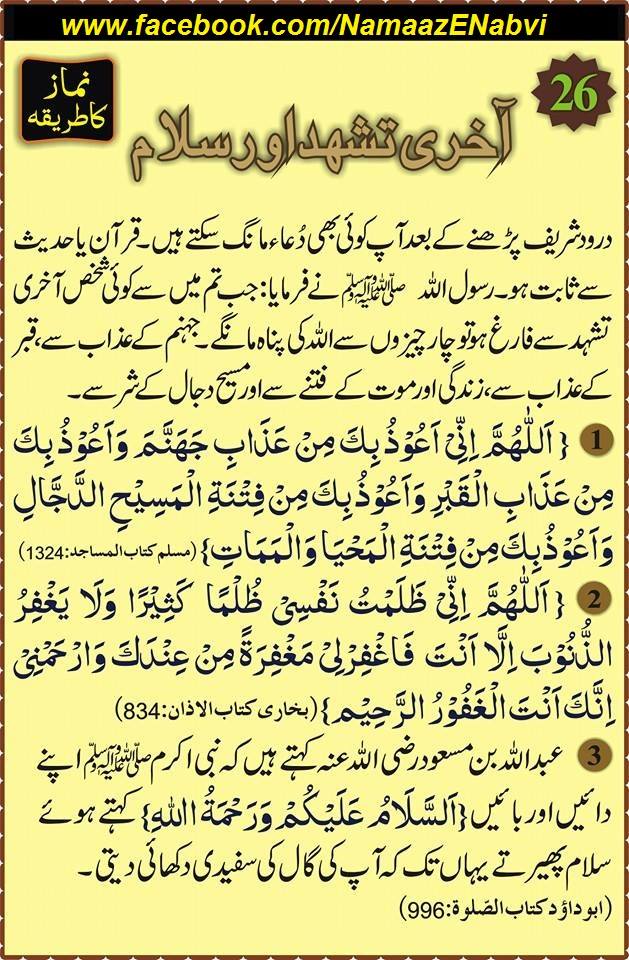 www.facebook.com/NamaazENabvi
26
نماز
کا طریقہ
آخری تشہد اور سلام
درود شریف پڑھنے کے بعد آپ کوئی بھی دُعاء مانگ سکتے ہیں۔ قرآن یا حدیث
سے ثابت ہو۔ رسول اللہ ﷺ نے فرمایا: جب تم میں سے کوئی شخص آخری
تشہد سے فارغ ہو تو چار چیزوں سے اللہ کی پناہ مانگے۔ جہنم کے عذاب سے، قبر
کے عذاب سے، زندگی اور موت کے فتنے سے اور مسیح دجال کے شر سے۔
1 { اَللّٰهُمَّ اِنِّیْ اَعُوْذُ بِكَ مِنْ عَذَابِ جَهَنَّمَ وَاَعُوْذُ بِكَ
مِنْ عَذَابِ الْقَبْرِ وَاَعُوْذُ بِكَ مِنْ فِتْنَةِ الْمَسِیْحِ الدَّجَّالِ
وَاَعُوْذُ بِكَ مِنْ فِتْنَةِ الْمَحْیَا وَالْمَمَاتِ} (مسلم کتاب المساجد:1324)
2 { اَللّٰهُمَّ اِنِّیْ ظَلَمْتُ نَفْسِیْ ظُلْمًا کَثِیْرًا وَلَا یَغْفِرُ
الذُّنُوْبَ اِلَّا اَنْتَ فَاغْفِرْلِیْ مَغْفِرَةً مِنْ عِنْدِكَ وَارْحَمْنِیْ
اِنَّكَ اَنْتَ الْغَفُوْرُ الرَّحِیْم} (بخاری کتاب الاذان:834)
3 عبداللہ بن مسعود رضی اللہ عنہ کہتے ہیں کہ نبی اکرم ﷺ اپنے
دائیں اور بائیں {اَلسَّلَامُ عَلَیْکُمْ وَرَحْمَةُ اللهِ} کہتے ہوئے
سلام پھیرتے یہاں تک کہ آپ کی گال کی سفیدی دکھائی دیتی۔
(ابوداؤد کتاب الصّلوة:996)